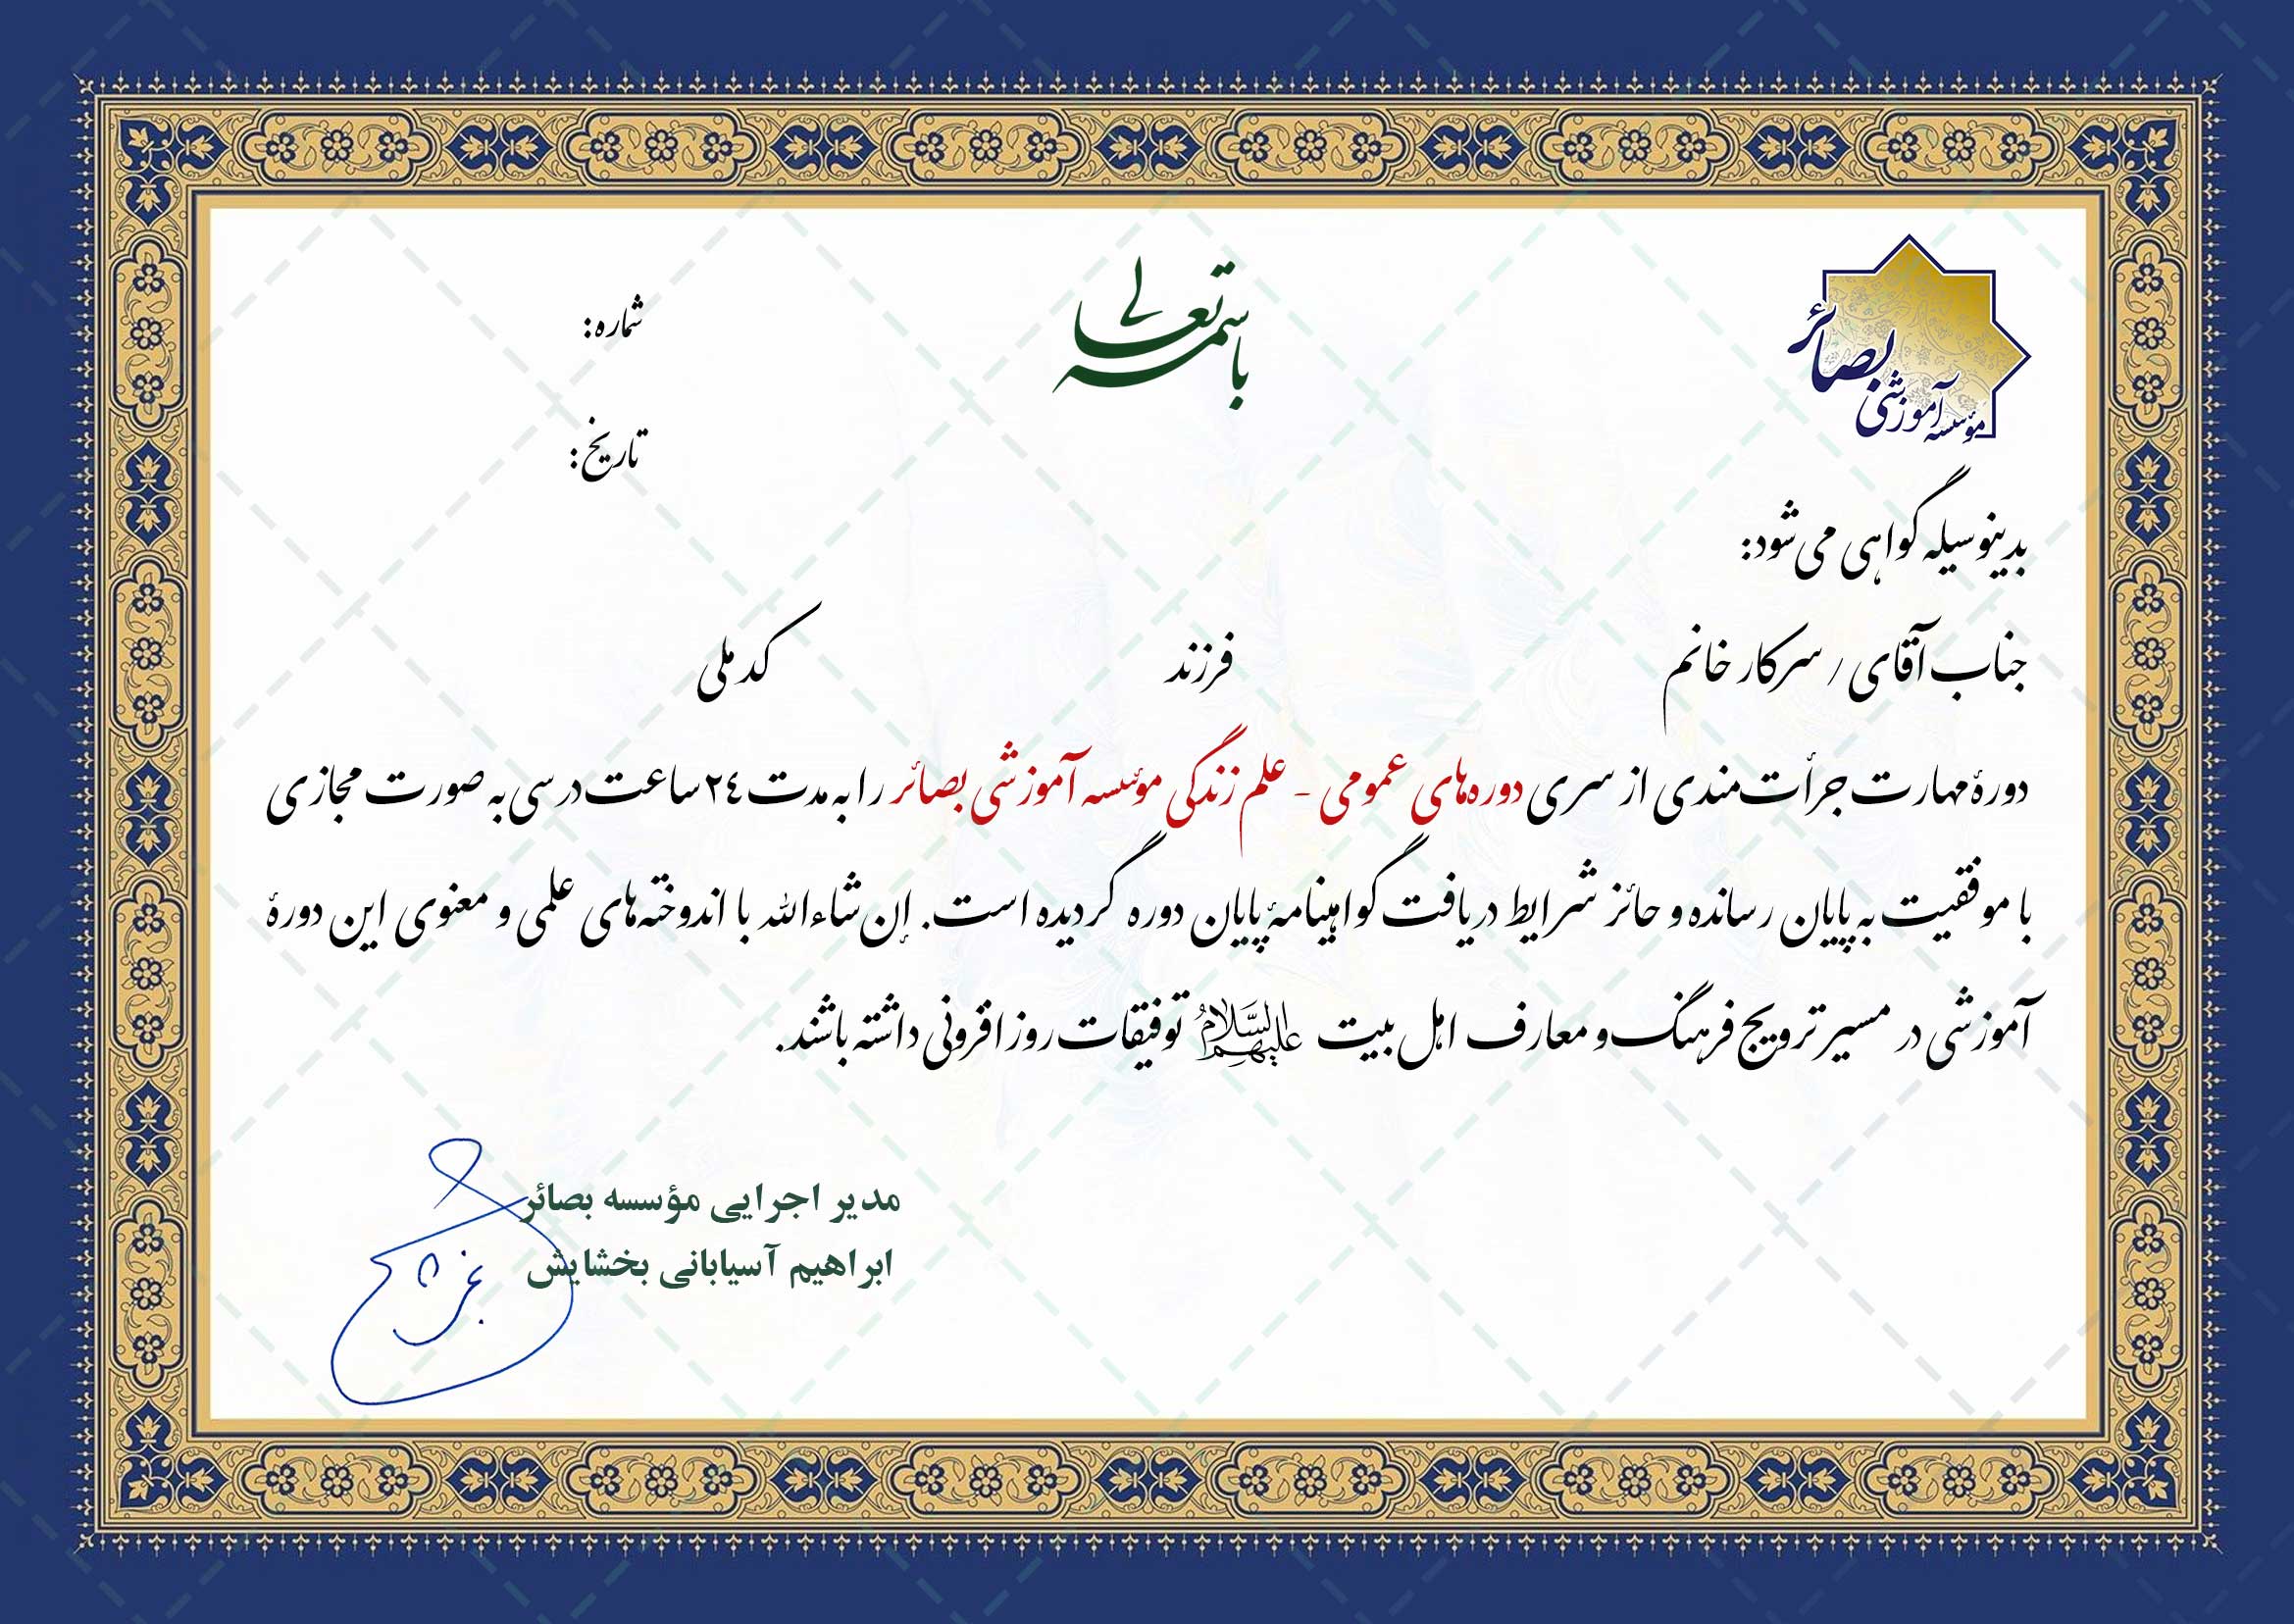 باسمه تعالی
بصائر
مؤسسه آموزشی
شماره:
تاریخ:
بدینوسیله گواهی می‌شود:
جناب آقای / سرکار خانم فرزند کد ملی
دورهٔ مهارت جرأت‌مندی از سری دوره‌های عمومی - علم زندگی مؤسسه آموزشی بصائر را به مدت ۲۴ ساعت درسی به صورت مجازی
با موفقیت به پایان رسانده و حائز شرایط دریافت گواهینامهٔ پایان دوره گردیده است. إن‌شاءالله با اندوخته‌های علمی و معنوی این دورهٔ
آموزشی در مسیر ترویج فرهنگ و معارف اهل بیت علیهم السلام توفیقات روز افزونی داشته باشند.
مدیر اجرایی مؤسسه بصائر
ابراهیم آسیابانی بخشایش